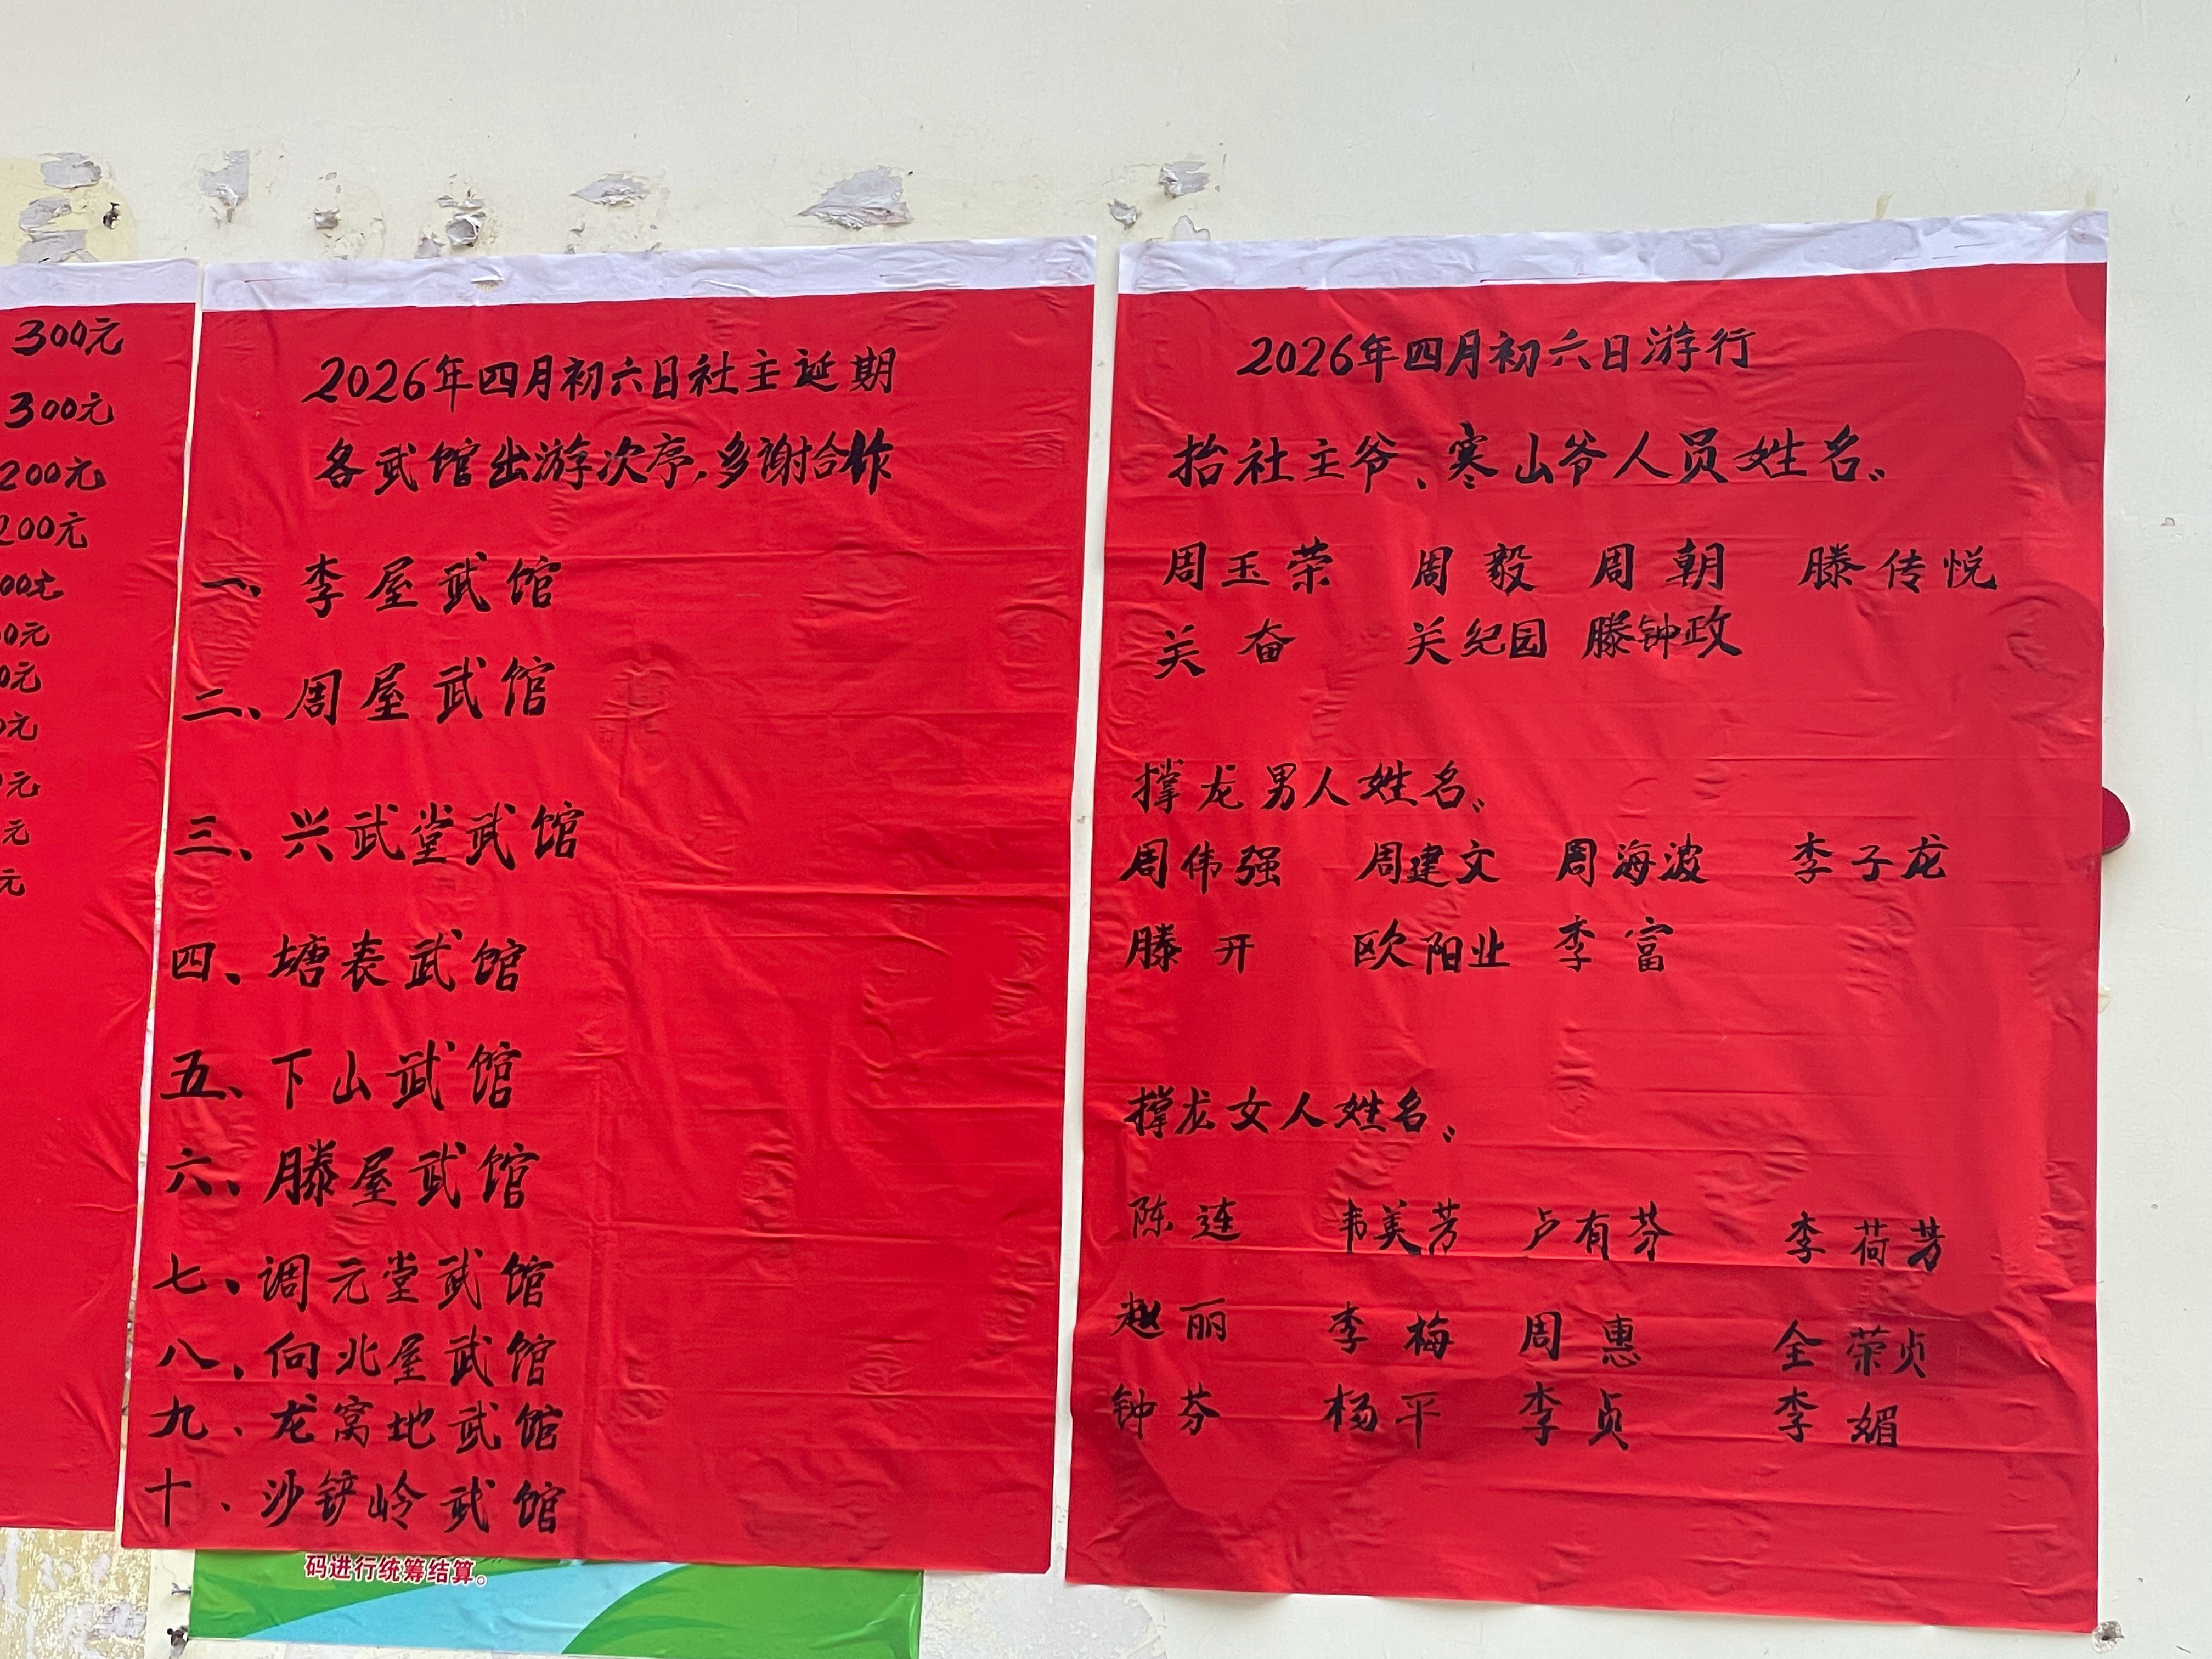 300元
300元
200元
200元
00元
0元
0元
0元
0元
元
元
2026年四月初六日社主诞期
各武馆出游次序,多谢合作
一、李屋武馆
二、周屋武馆
三、兴武堂武馆
四、塘表武馆
五、下山武馆
六、滕屋武馆
七、调元堂武馆
八、向北屋武馆
九、龙窝地武馆
十、沙铲岭武馆
码进行统筹结算。
2026年四月初六日游行
抬社主爷、寒山爷人员姓名:
周玉荣 周毅 周朝 滕传悦
关奋 关纪园 滕钟政
撑龙男人姓名:
周伟强 周建文 周海波 李子龙
滕开 欧阳业 李富
撑龙女人姓名:
陈连 韦美芳 卢有芬 李荷芳
赵丽 李梅 周惠 全荣贞
钟芬 杨平 李贞 李媚